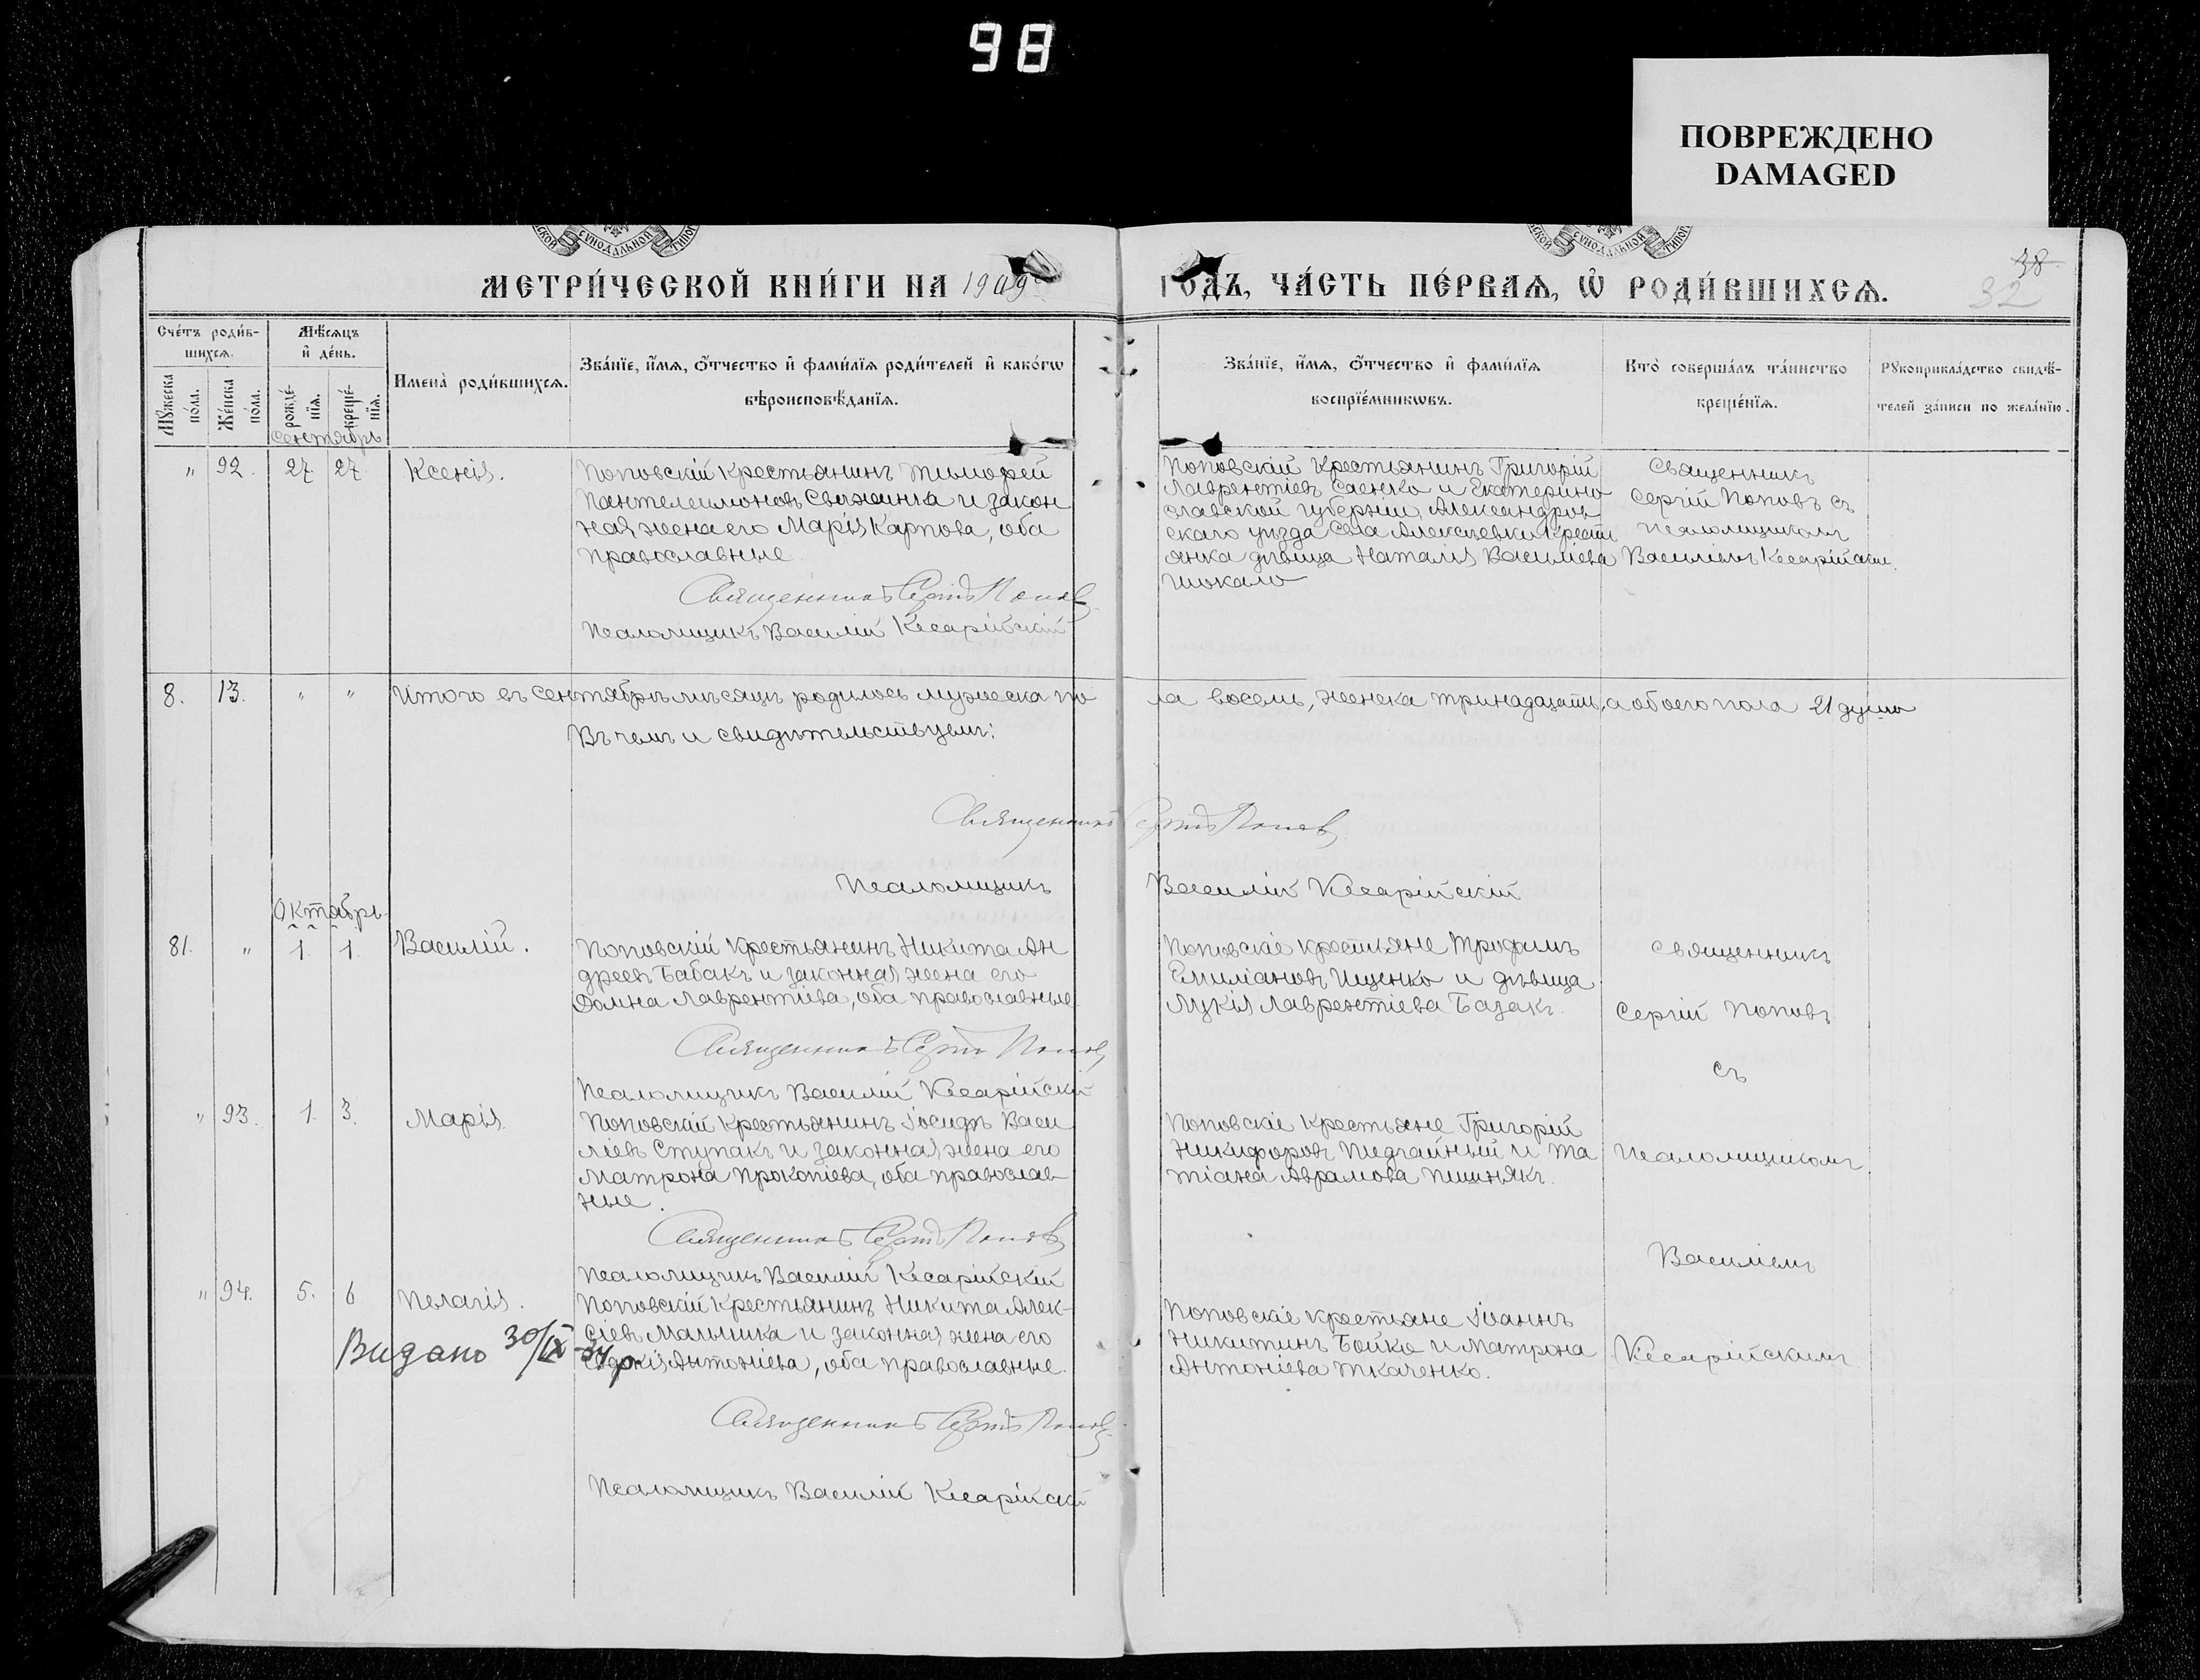 98
ПОВРЕЖДЕНО
DAMAGED
МЕТРИ́ЧЕСКОЙ КНИ́ГИ НА 1909
ГОДЪ, ЧА́СТЬ ПЕ́РВАѦ, Ѡ҆ РОДИ́ВШИХСѦ.
38
32
Сче́тъ роди́в-
шихсѧ.
Мѣ́сѧцъ
и҆ де́нь.
Мꙋ́жеска
по́ла.
Же́нска
по́ла.
рожде́-
нїѧ.
креще́-
нїѧ.
Имена̀ роди́вшихсѧ.
Зва́нїе, и҆́мѧ, ѻ҆́тчество и҆ фами́лїѧ роди́телей и҆ како́гѡ
вѣроисповѣ́данїѧ.
Зва́нїе, и҆́мѧ, ѻ҆́тчество и҆ фами́лїѧ
воспрїе́мникѡвъ.
Кто̀ соверша́лъ та́инство
креще́нїѧ.
Рꙋкоприкла́дство свидѣ́-
телей за́писи по жела́нїю.
Сентябрь
" 92. 27 27 Ксенія.
Поповскій крестьянинъ Тимофей
Пантелеимоновъ Свженка и закон
ная жена его Марія Карпова, оба
православные.
Священникъ Сергій Поповъ
Псаломщикъ Василій Кесарійскій
Поповскій крестьянинъ Григорій
Лаврентіевъ Саенко и Екатерино
славской губерніи, Александров
скаго уѣзда села Алексѣевки крестья
янка дѣвица Наталія Василіева
Шокало
Священникъ
Сергій Поповъ съ
псаломщикомъ
Василіемъ Кесарійским.
8. 13. " " Итого въ Сентябрѣ мѣсяцѣ родилось мужеска по
ла восемь, женска тринадцать, а обоего пола 21 душа
Въ чемъ и свидѣтельствуемъ:
Священникъ Сергій Поповъ
Псаломщикъ Василій Кесарійскій
Октябрь
81. " 1. 1. Василій.
Поповскій крестьянинъ Никита Ан
дреевъ Бабакъ и законная жена его
Домна Лаврентіева, оба православные
Священникъ Сергій Поповъ
Псаломщикъ Василій Кесарійскій
Поповскіе крестьяне Трофимъ
Емиліановъ Ищенко и дѣвица
Лукія Лаврентіева Базакъ.
Священникъ
Сергій Поповъ
съ
" 93. 1. 3. Марія
Поповскій крестьянинъ Іосифъ Васи
ліевъ Ступакъ и законная жена его
Матрона Прокопіева, оба православ
ные.
Священникъ Сергій Поповъ
Псаломщикъ Василій Кесарійскій
Поповскіе крестьяне Григорій
Никифоровъ Педгайный и Та
тіана Аврамова Пишнякъ.
псаломщикомъ
Василіемъ
" 94. 5. 6 Пелагія.
Видано 30/IX-34 р.
Поповскій крестьянинъ Никита Алек-
сіевъ Мальчика и законная жена его
Антоніева, оба православные.
Священникъ Сергій Поповъ
Псаломщикъ Василій Кесарійскій
Поповскіе крестьяне Іоаннъ
Никитинъ Бойко и Матрона
Антоніева Ткаченко.
Кесарійскимъ